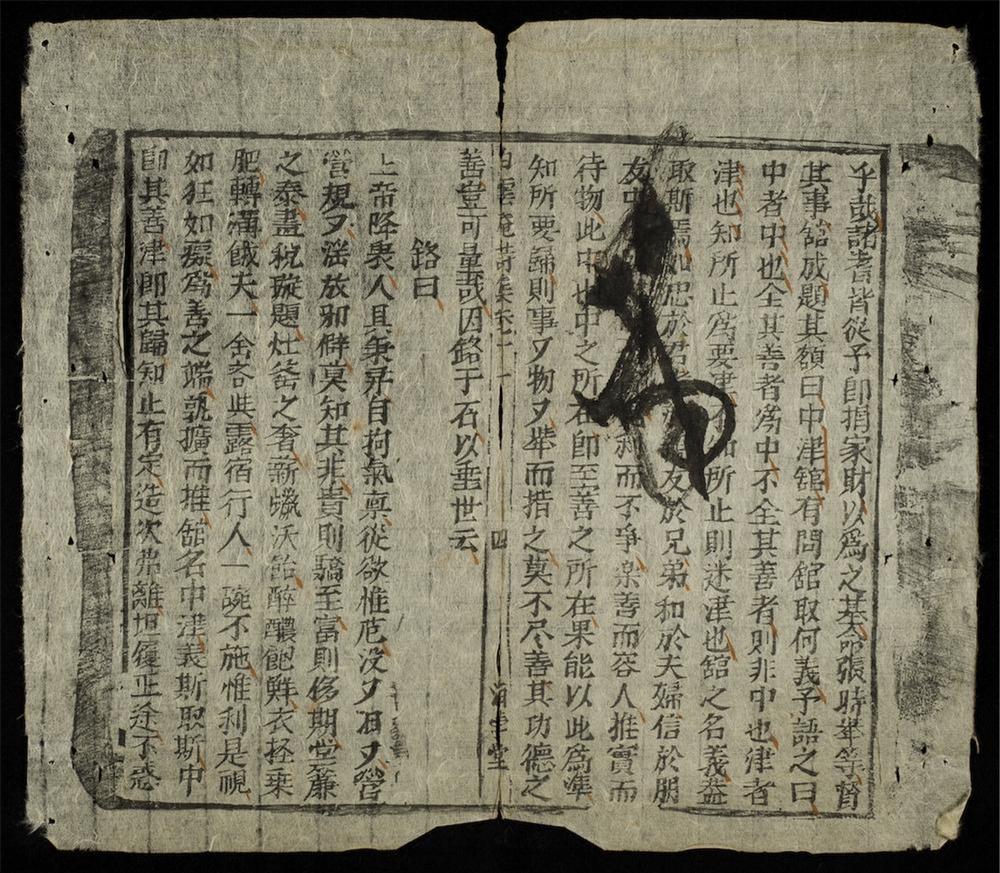 乎哉諸耆皆從予卽捐家財以爲之基命張時犖等督
其事舘成題其額曰中津舘有問舘取何義予語之曰
中者中也全其善者爲中不全其善者則非中也津者
津也知所止爲要津不知所止則迷津也舘之名義蓋
取斯焉如忠於君友於兄弟和於夫婦信於朋
友中和而不爭樂善而容人推實而
待物此中也中之所在卽至善之所在果能以此爲準
知所要歸則事又物又犖而措之莫不尽善其功德之
善豈可量哉因銘于石以垂世云
白雲庵詩集卷十一
四
銘曰
上帝降衷人具秉彛自拘氣禀從欲惟危没又汨又營
營規又淫放邪僻莫知其非貴則驕至富則侈期堂廉
之泰畫梲璇題灶釜之奢新蠟沃飴醉醲飽鮮衣輕乗
肥轉溝餓夫一舍吝些露宿行人一碗不施惟利是視
如狂如癡爲善之端孰擴而推舘名中津義斯取斯中
卽其善津卽其歸知止有定造次弗離坦履止途不惑